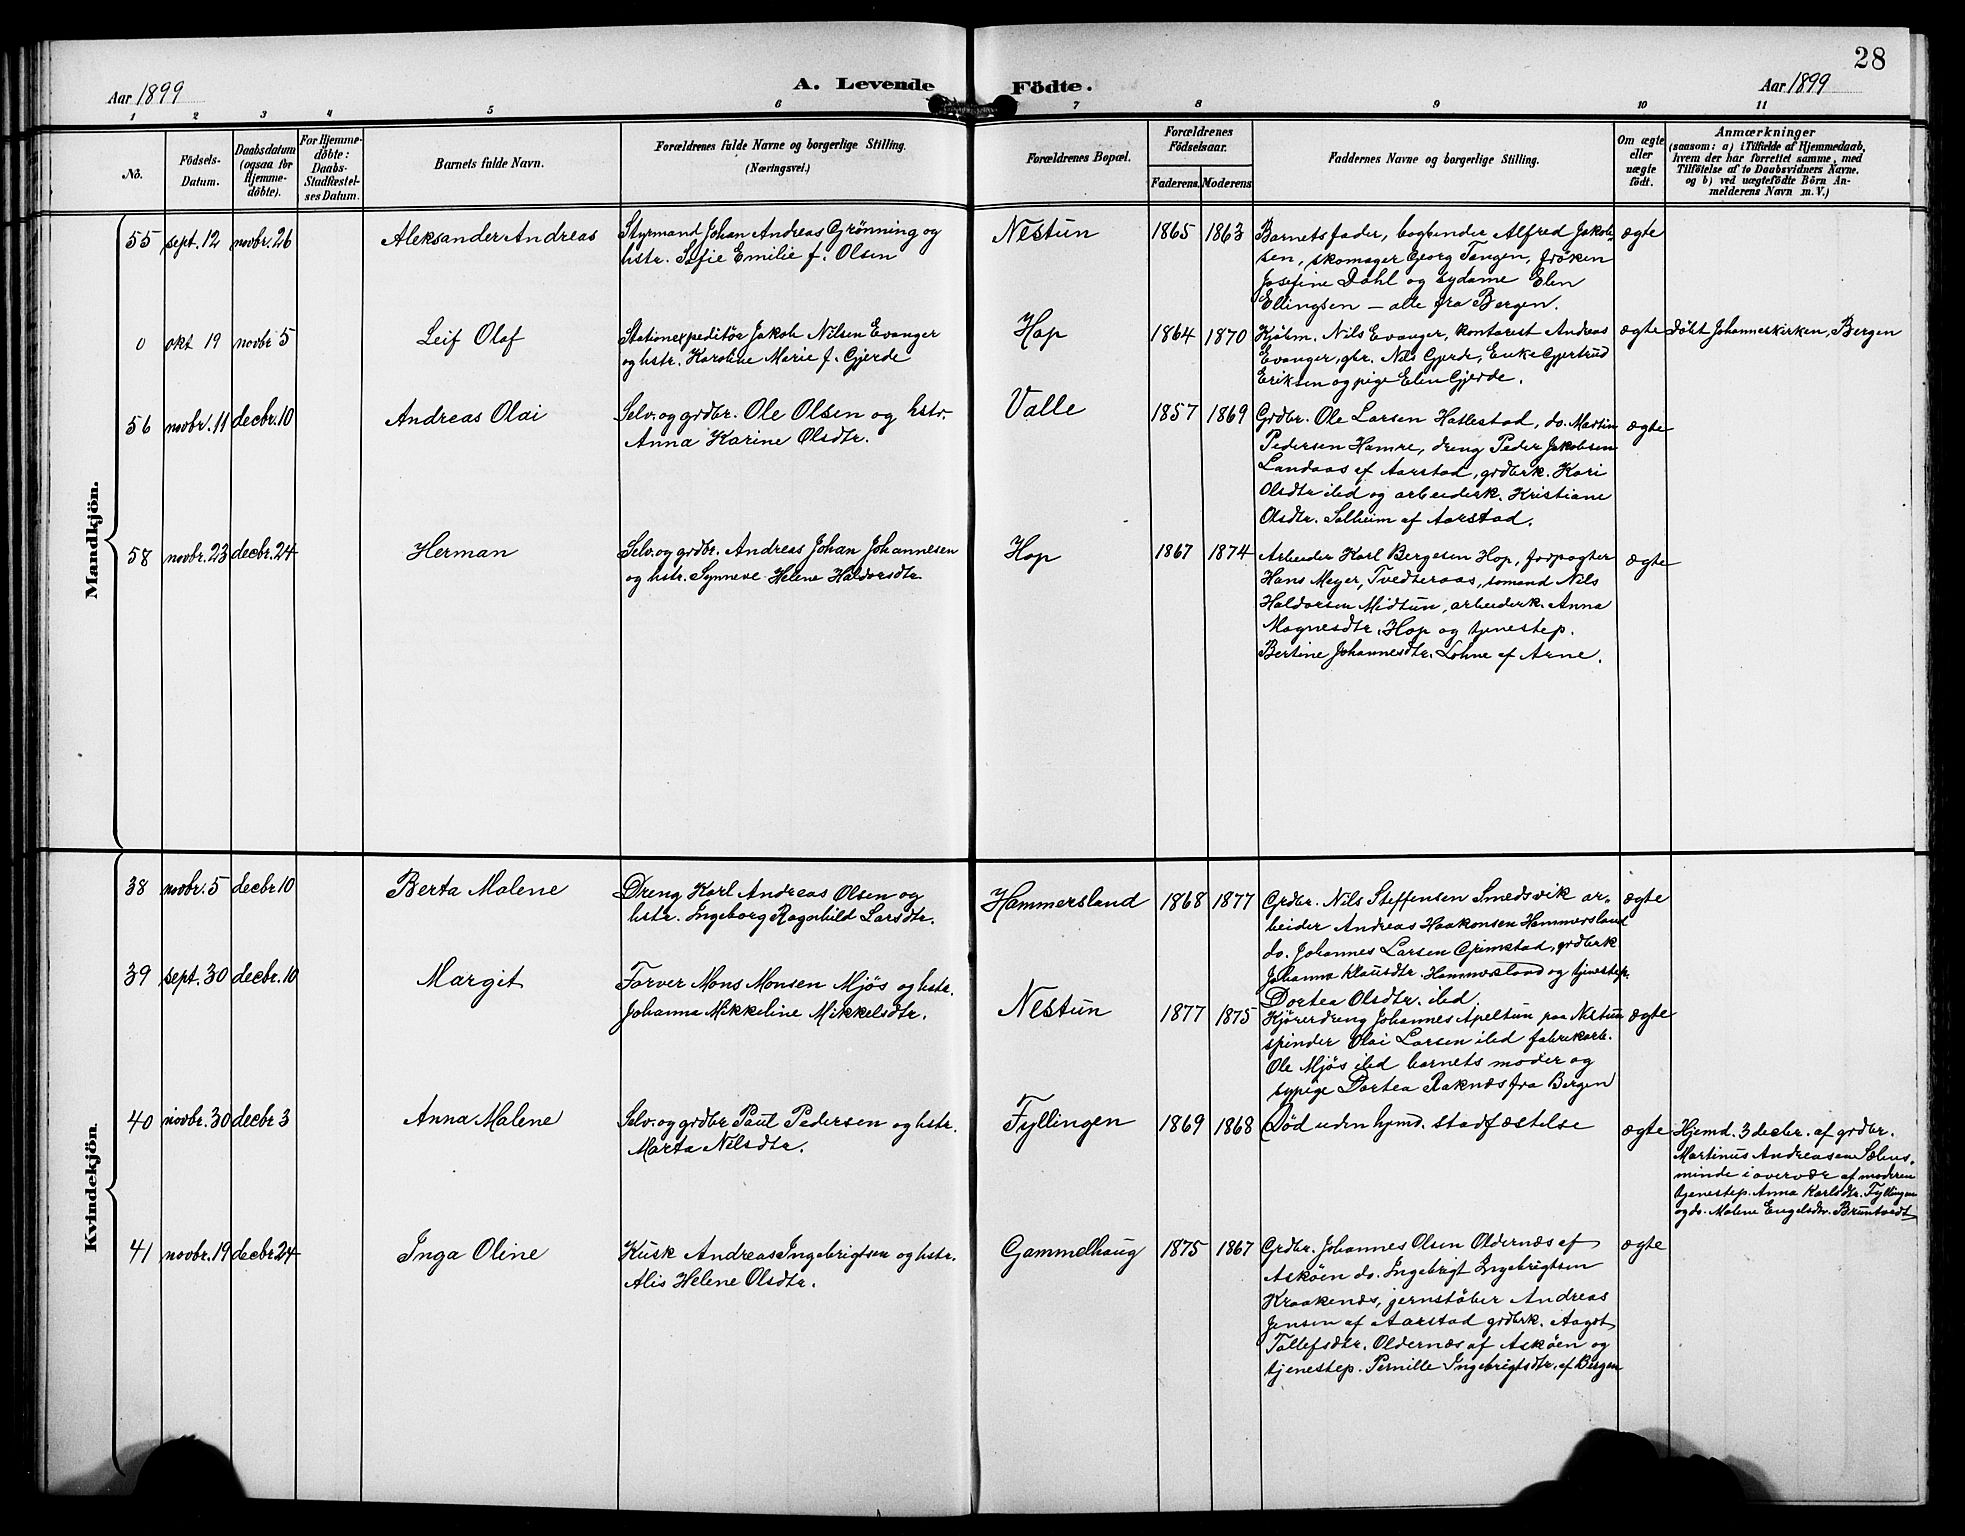 28
Aar 1899 A. Levende Födte. Aar 1899
1 2 3 4 5 6 7 8 9 10 11
No.
Födsels-
Datum.
Daabsdatum
(ogsaa for
Hjemme-
döbte).
For Hjemme-
döbte:
Daabs-
Stadfæstel-
ses Datum.
Barnets fulde Navn.
Forældrenes fulde Navne og borgerlige Stilling.
(Næringsvei.)
Forældrenes Bopæl.
Forældrenes
Födselsaar.
Faderens. Moderens
Faddernes Navne og borgerlige Stilling.
Om ægte
eller
uægte
födt.
Anmærkninger
(saasom: a) i Tilfælde af Hjemmedaab,
hvem der har forrettet samme, med
Tilföielse af to Daabsvidners Navne.
og b) ved uægtefödte Börn An-
melderens Navn m. V.)
Mandkjön.
55 sept. 12 novbr. 26 Aleksander Andreas
Styrmand Johan Andreas Grönning og
hstr. Sofie Emilie f. Olsen
Nestun 1865 1863
Barnets fader, bogbinder Alfred Jakob-
sen, skomager Georg Tangen, fröken
Josefine Dahl og sydame Elen
Ellingsen — alle fra Bergen.
ægte
0 okt 19 novbr 5 Leif Olaf
Stationexpeditör Jakob Nilsen Evanger
og hstr. Karoline Marie f. Gjerde
Hop 1864 1870
Kjöbm. Nils Evanger, kontorist Andreas
Evanger, gbr. Nils Gjerde, Enke Gjertrud
Eriksen og pige Elen Gjerde.
ægte Döbt Johanneskirken, Bergen
56 novbr. 11 decbr. 10 Andreas Olai
Selv. og grdbr. Ole Olsen og hstr.
Anna Karine Olsdtr.
Valle 1857 1869
Grdbr. Ole Larsen Hatlestad, do. Martin
Pedersen Hamre, dreng Peder Jakobsen
Landaas af Aarstad, grdbrk. Kari
Olsdtr ibid og arbeiderk. Kristiane
Olsdtr. Solheim af Aarstad.
ægte
58 novbr. 23 decbr. 24 Herman
Selv. og grdbr. Andreas Johan Johannesen
og hstr. Synneve Helene Haldorsdtr.
Hop 1867 1874
Arbeider Karl Bergesen Hop, forpagter
Hans Meyer, Tvedteraas, sömand Nils
Haldorsen Midtun, arbeiderk. Anna
Magnesdtr. Hop og tjenestep.
Bertine Johannesdtr. Lohne af Arne.
ægte
Kvindekjön.
38 novbr. 5 decbr 10 Berta Malene
Dreng Karl Andreas Olsen og
hstr. Ingeborg Ragnhild Larsdtr.
Hammersland 1868 1877
Grdbr. Nils Steffensen Smedsvik ar-
beider Andreas Haakonsen Hammersland
do. Johannes Larsen Grimstad, grdbrk
Johanna Klausdtr. Hammersland og tjenestep.
Dortea Olsdtr. ibid.
ægte
39 sept. 30 decbr. 10 Margit
Farver Mons Monsen Mjös og hstr.
Johanna Mikkeline Mikkelsdtr.
Nestun 1877 1875
Kjörerdreng Johannes Apeltun paa Nestun
spinder Olai Larsen ibid fabrikarb.
Ole Mjös ibid barnets moder og
sypige Dortea Raknæs fra Bergen
ægte
40 novbr. 30 decbr 3 Anna Malene
Selv. og grdbr Paul Pedersen og hstr.
Marta Nilsdtr.
Fyllingen 1869 1868
Död uden hjmd. stadfæstelse
ægte
Hjemd. 3 decbr. af grdbr.
Martinus Andreasen Sælens-
minde i overvær af moderen
tjenestep. Anna Karlsdtr. Fyllingen
og do. Malene Engelsdtr. Bruntvedt
41 novbr. 19 decbr. 24 Inga Oline
Kusk Andreas Ingebrigtsen og hstr.
Alis Helene Olsdtr.
Gammelhaug 1875 1867
Grdbr. Johannes Olsen Oldernæs af
Asköen do. Ingebrigt Ingebrigtsen
Kraakenæs, jernstöber Andreas
Jensen af Aarstad grdbrk. Aagot
Tollefsdtr. Oldernæs af Asköen og
tjenestep. Pernille Ingebrigtsdtr. af Bergen
ægte